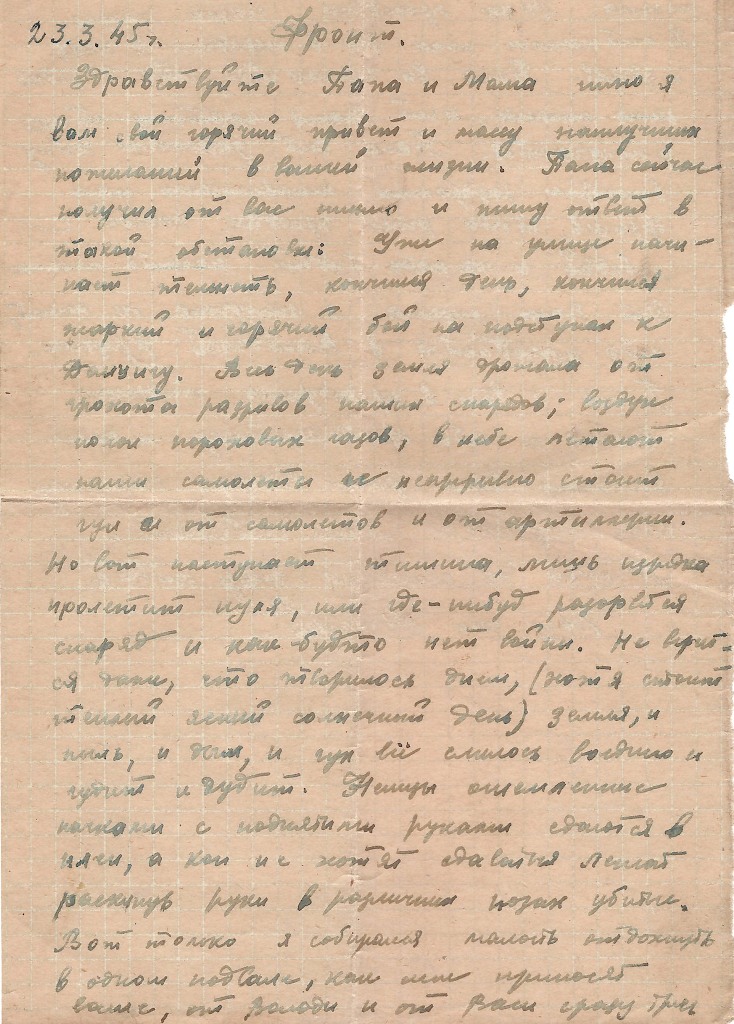 23.3.45г. Фронт.
Здравствуйте Папа и Мама шлю я
вам свой горячий привет и массу наилучших
пожеланий в вашей жизни. Папа сейчас
получил от вас письмо и пишу ответ в
такой обстановке: Уже на улице начи-
нает темнеть, кончился день, кончился
жаркий и горячий бой на подступах к
Данцигу. Весь день земля дрожала от
грохота разрывов наших снарядов; воздух
пороховых газов, в небе летают
наши самолеты и непрерывно стоит
гул и от самолетов и от артиллерии.
Но вот наступает тишина, лишь изредка
пролетит пуля, или где-нибуд разорвётся
снаряд и как будто нет войны. Не верит-
ся даже, что творилось днем, (хотя стоит
теплый ясный солнечный день) земля, и
пыль, и дым, и гул всё слилось воедино и
гудит и дудит. Немцы ошемленные
пачками с поднятыми руками сдаются в
плен, а кои не хотят сдаваться лежат
раскинув руки в различных позах убитые.
Вот только я собирался малость отдохнуть
в одном подвале, как мне приносят
ваше, от Володи и от Васи сразу трех